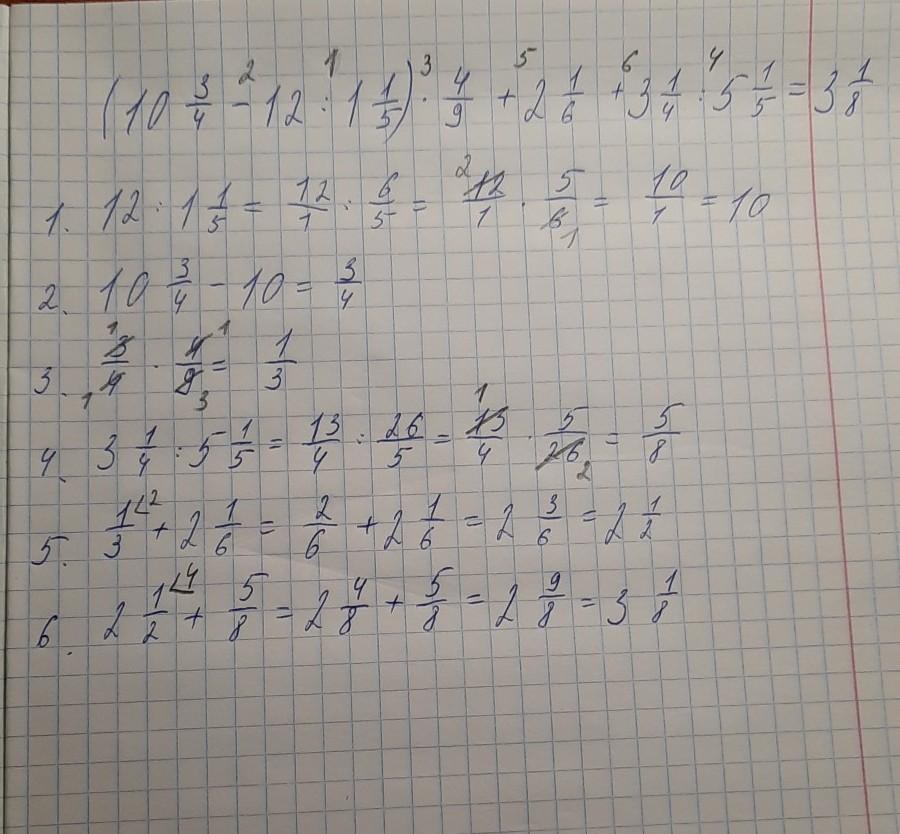 (10 3/4 - 12 : 1 1/5) · 4/9 + 2 1/6 + 3 1/4 : 5 1/5 = 3 1/8
1. 12 : 1 1/5 = 12/1 : 6/5 = 12/1 · 5/6 = 10/1 = 10
2. 10 3/4 - 10 = 3/4
3. 3/4 · 4/9 = 1/3
4. 3 1/4 : 5 1/5 = 13/4 : 26/5 = 13/4 · 5/26 = 5/8
5. 1/3 + 2 1/6 = 2/6 + 2 1/6 = 2 3/6 = 2 1/2
6. 2 1/2 + 5/8 = 2 4/8 + 5/8 = 2 9/8 = 3 1/8